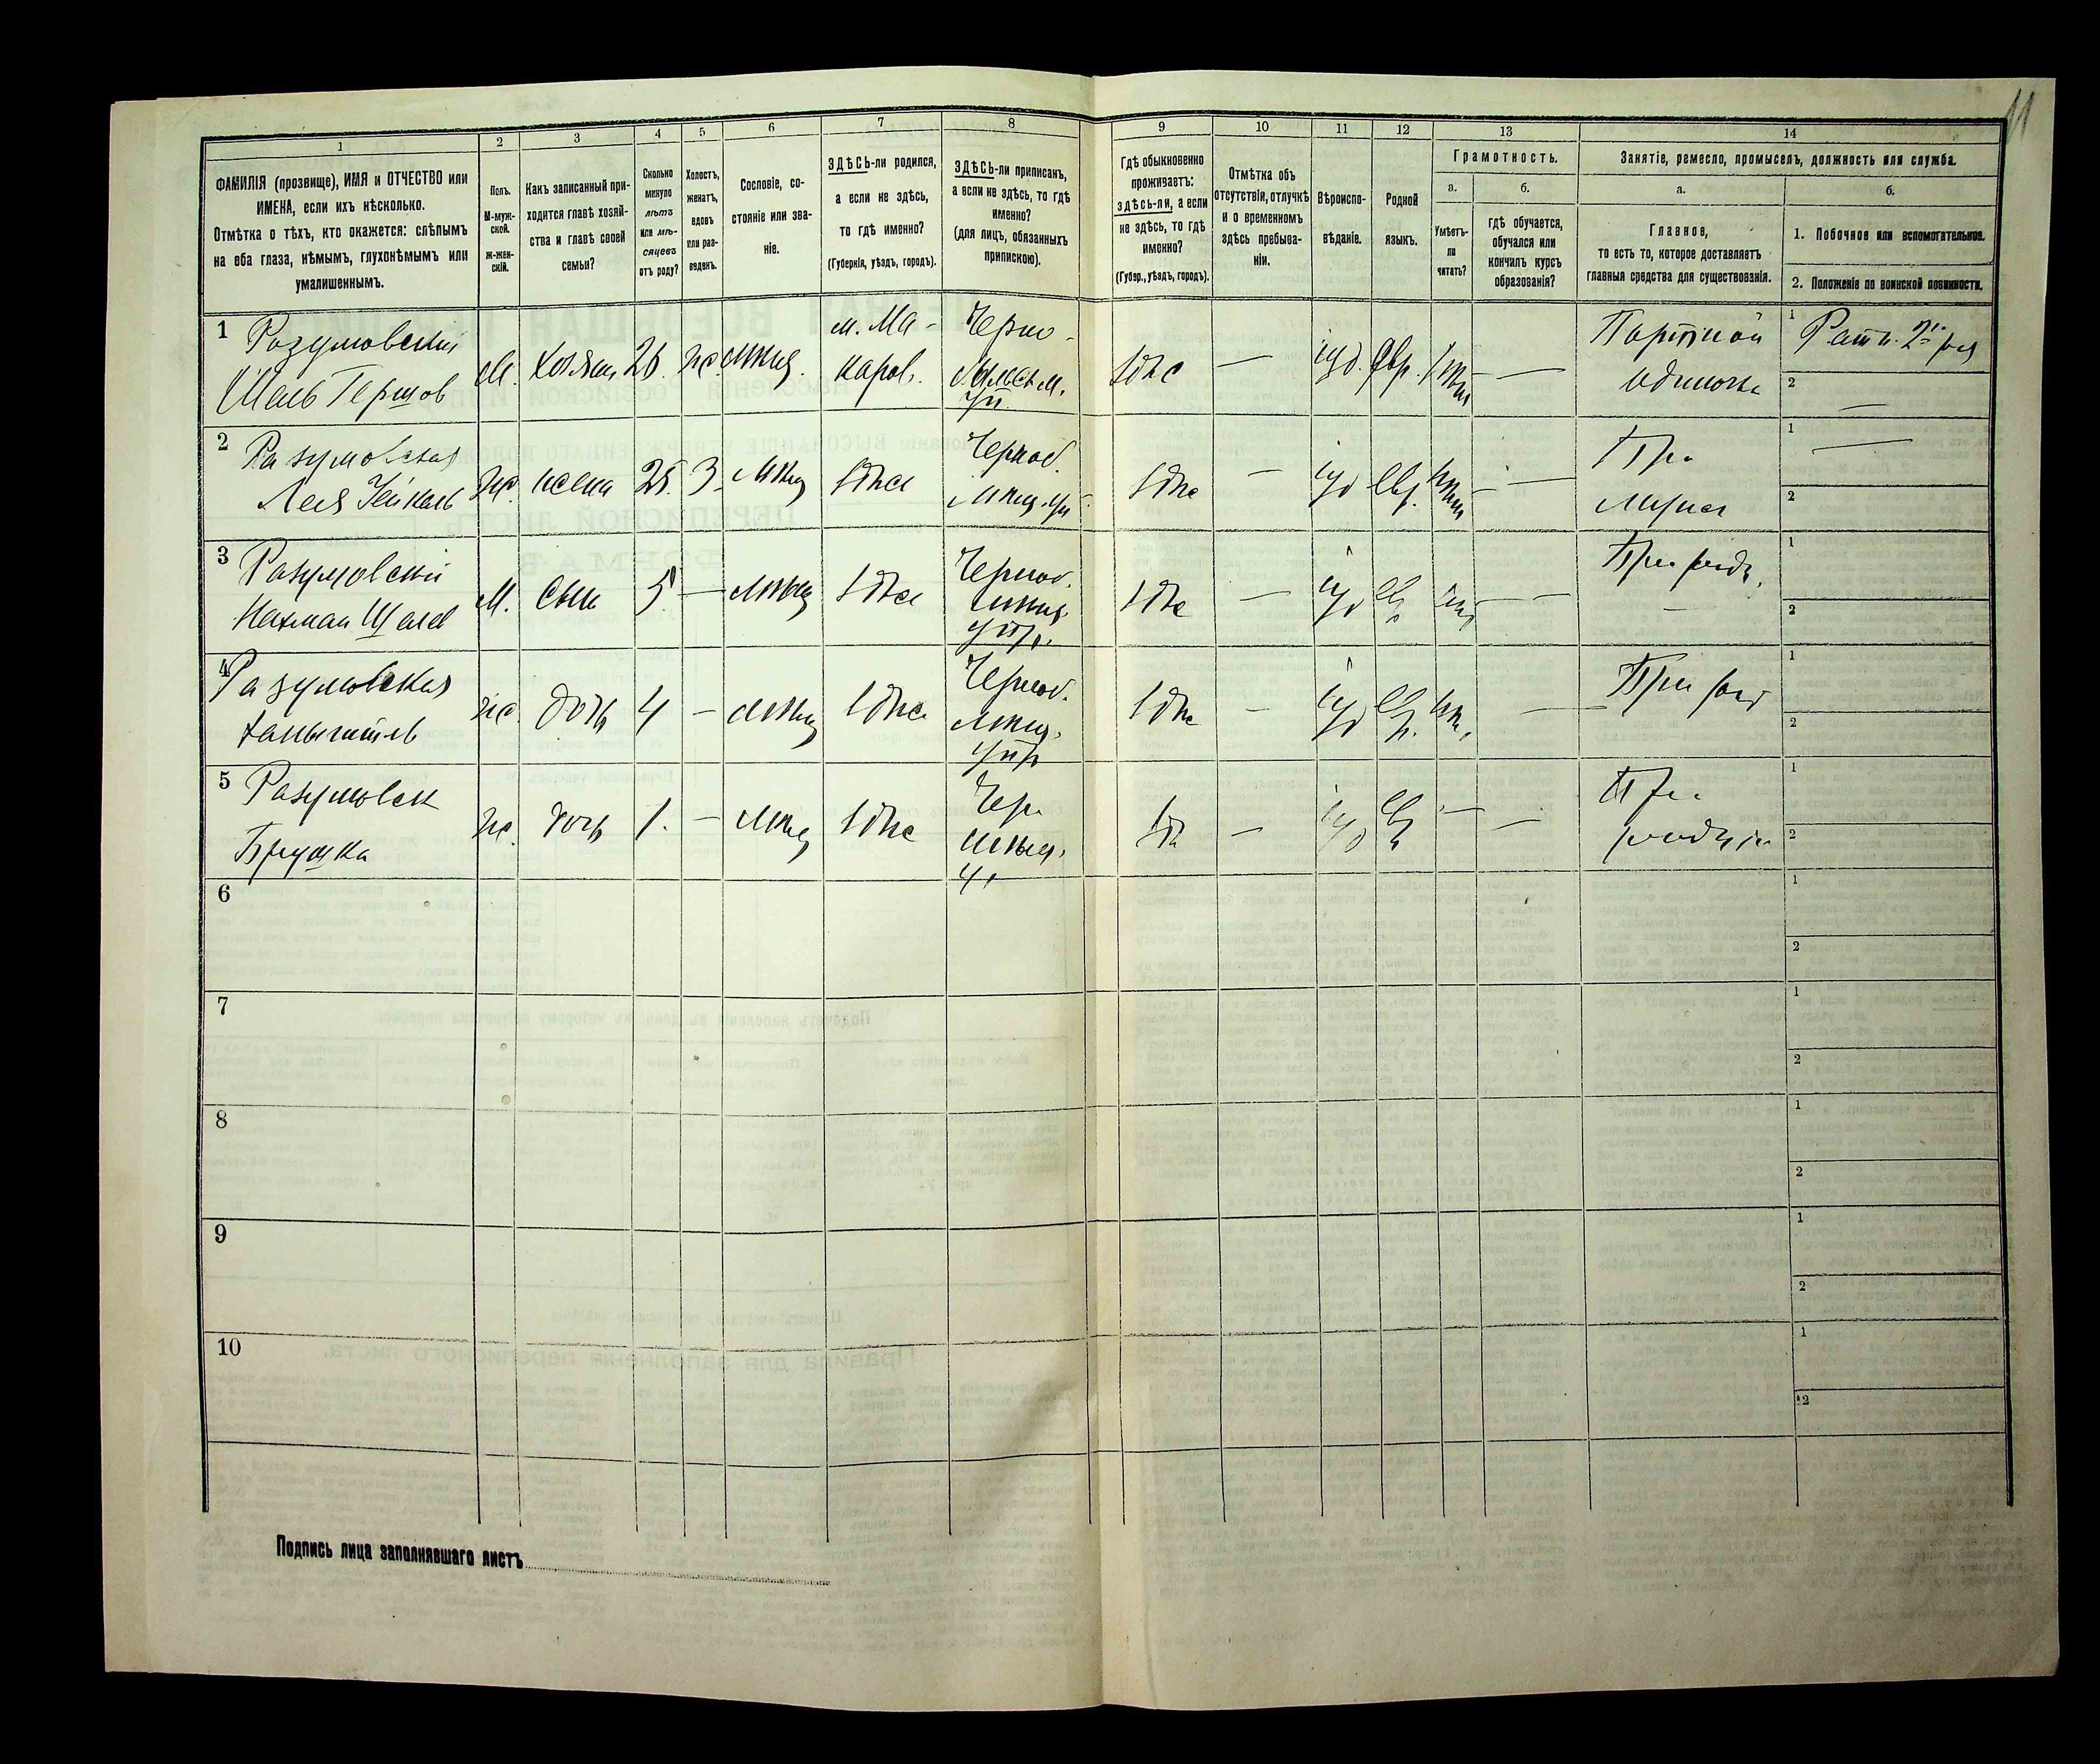 11
1
2
3
4
5
6
7
8
9
10
11
12
13
14
ФАМИЛІЯ (прозвище), ИМЯ и ОТЧЕСТВО или
ИМЕНА, если ихъ нѣсколько.
Отмѣтка о тѣхъ, кто окажется: слѣпымъ
на оба глаза, нѣмымъ, глухонѣмымъ или
умалишеннымъ.
Полъ.
М-муж-
ской.
Ж-жен-
скій.
Какъ записанный при-
ходится главѣ хозяй-
ства и главѣ своей
семьи?
Сколько
минуло
лѣтъ
или мѣ-
сяцевъ
отъ роду?
Холостъ,
женатъ,
вдовъ
или раз-
веденъ.
Сословіе, со-
стояніе или зва-
ніе.
ЗДѢСЬ-ли родился,
а если не здѣсь,
то гдѣ именно?
(Губернія, уѣздъ, городъ).
ЗДѢСЬ-ли приписанъ,
а если не здѣсь, то гдѣ
именно?
(для лицъ, обязанныхъ
припискою).
Гдѣ обыкновенно
проживаетъ:
здѣсь-ли, а если
не здѣсь, то гдѣ
именно?
(Губер., уѣздъ, городъ).
Отмѣтка объ
отсутствіи, отлучкѣ
и о временномъ
здѣсь пребыва-
ніи.
Вѣроиспо-
вѣданіе.
Родной
языкъ.
Грамотность.
а.
Умѣетъ-
ли
читать?
б.
гдѣ обучается,
обучался или
кончилъ курсъ
образованія?
Занятіе, ремесло, промыселъ, должность или служба.
а.
Главное,
то есть то, которое доставляетъ
главныя средства для существованія.
б.
1. Побочное или вспомогательное.
2. Положеніе по воинской повинности.
1
Разумовскій
Шаль Гершов
М.
хозяин
26
же.
мѣщ.
м. Ма-
каров.
Черно-
здѣс
іуд.
Евр.
Портной
одиночка
1
Ратн. 2
2
2
Разумовская
Лея
же.
жена
25.
З.
мѣщ
здѣс
Черноб.
мѣщ. уп
здѣс
іуд
Евр.
При
мужѣ
1
2
3
Разумовскій
Нахман
М.
сын
5
мѣщ
здѣс
Черноб.
мѣщ.
упр.
здѣс
іуд
Ев
При родит.
1
2
4
Разумовская
же.
дочь
4
мѣщ
здѣс
Черноб.
мѣщ.
упр
здѣс
іуд
Евр.
При род
1
2
5
Разумовск
же.
дочь
1.
мѣщ
здѣс
Чер.
мѣщ.
зд
іуд
Ев
При
1
2
6
1
2
7
1
2
8
1
2
9
1
2
10
1
2
Подпись лица заполнявшаго листъ